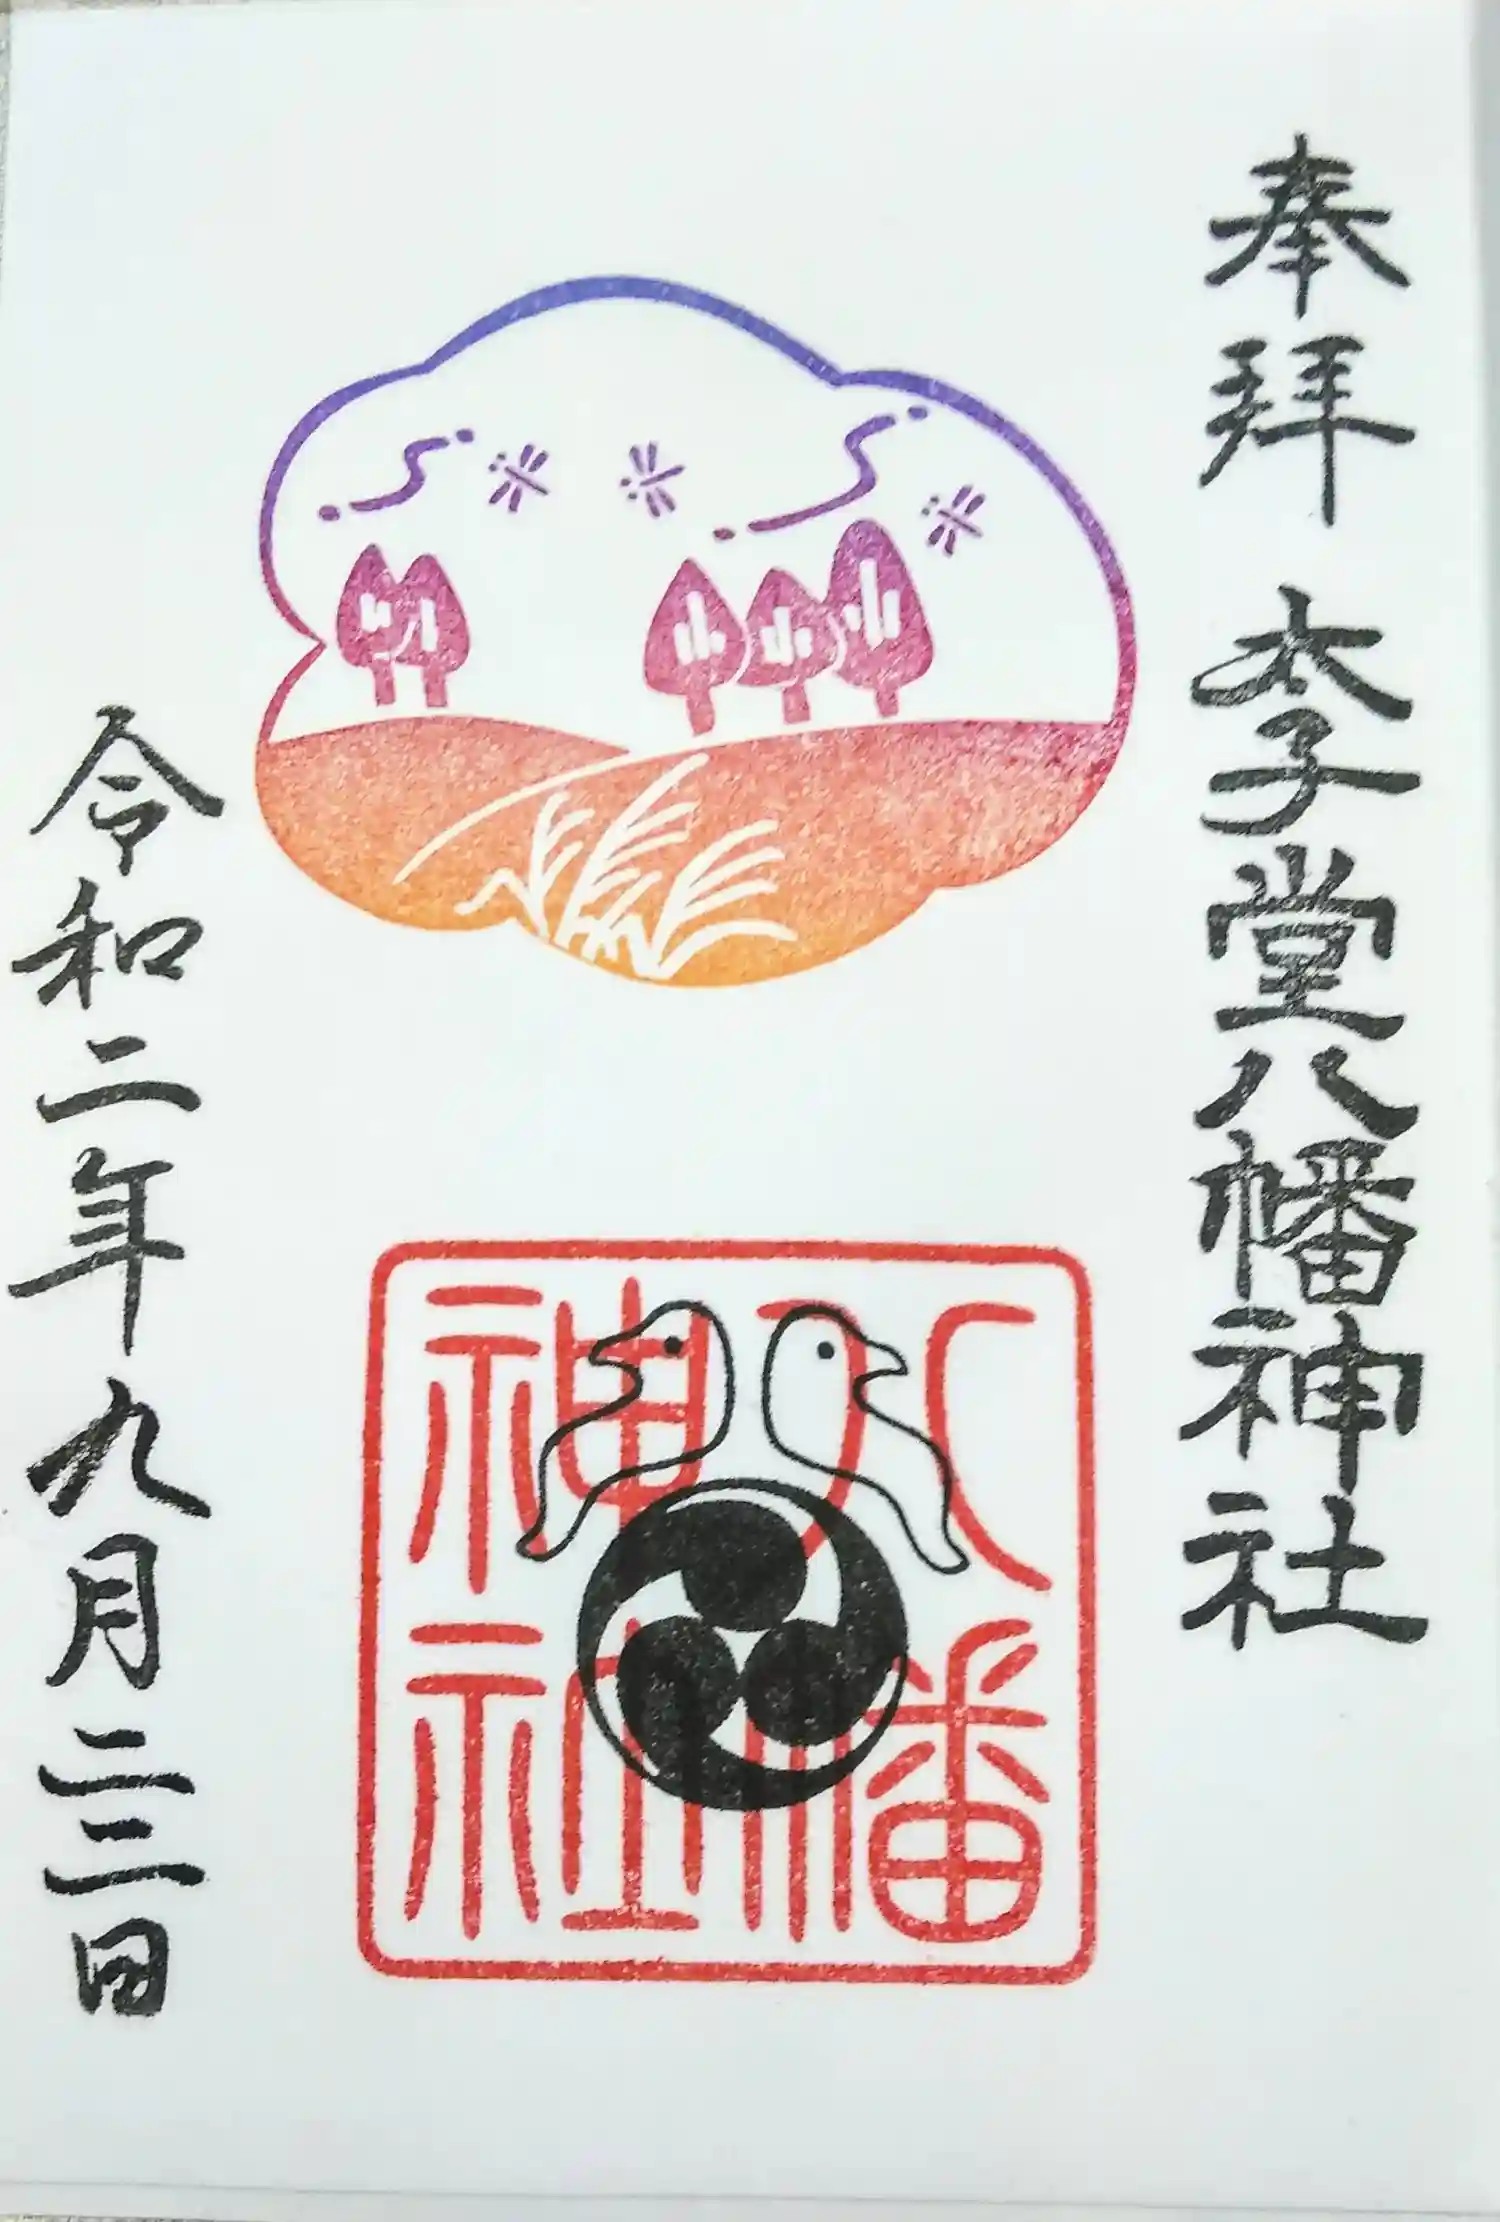 奉拝 太子堂八幡神社
八幡
神社
令和二年九月二三日